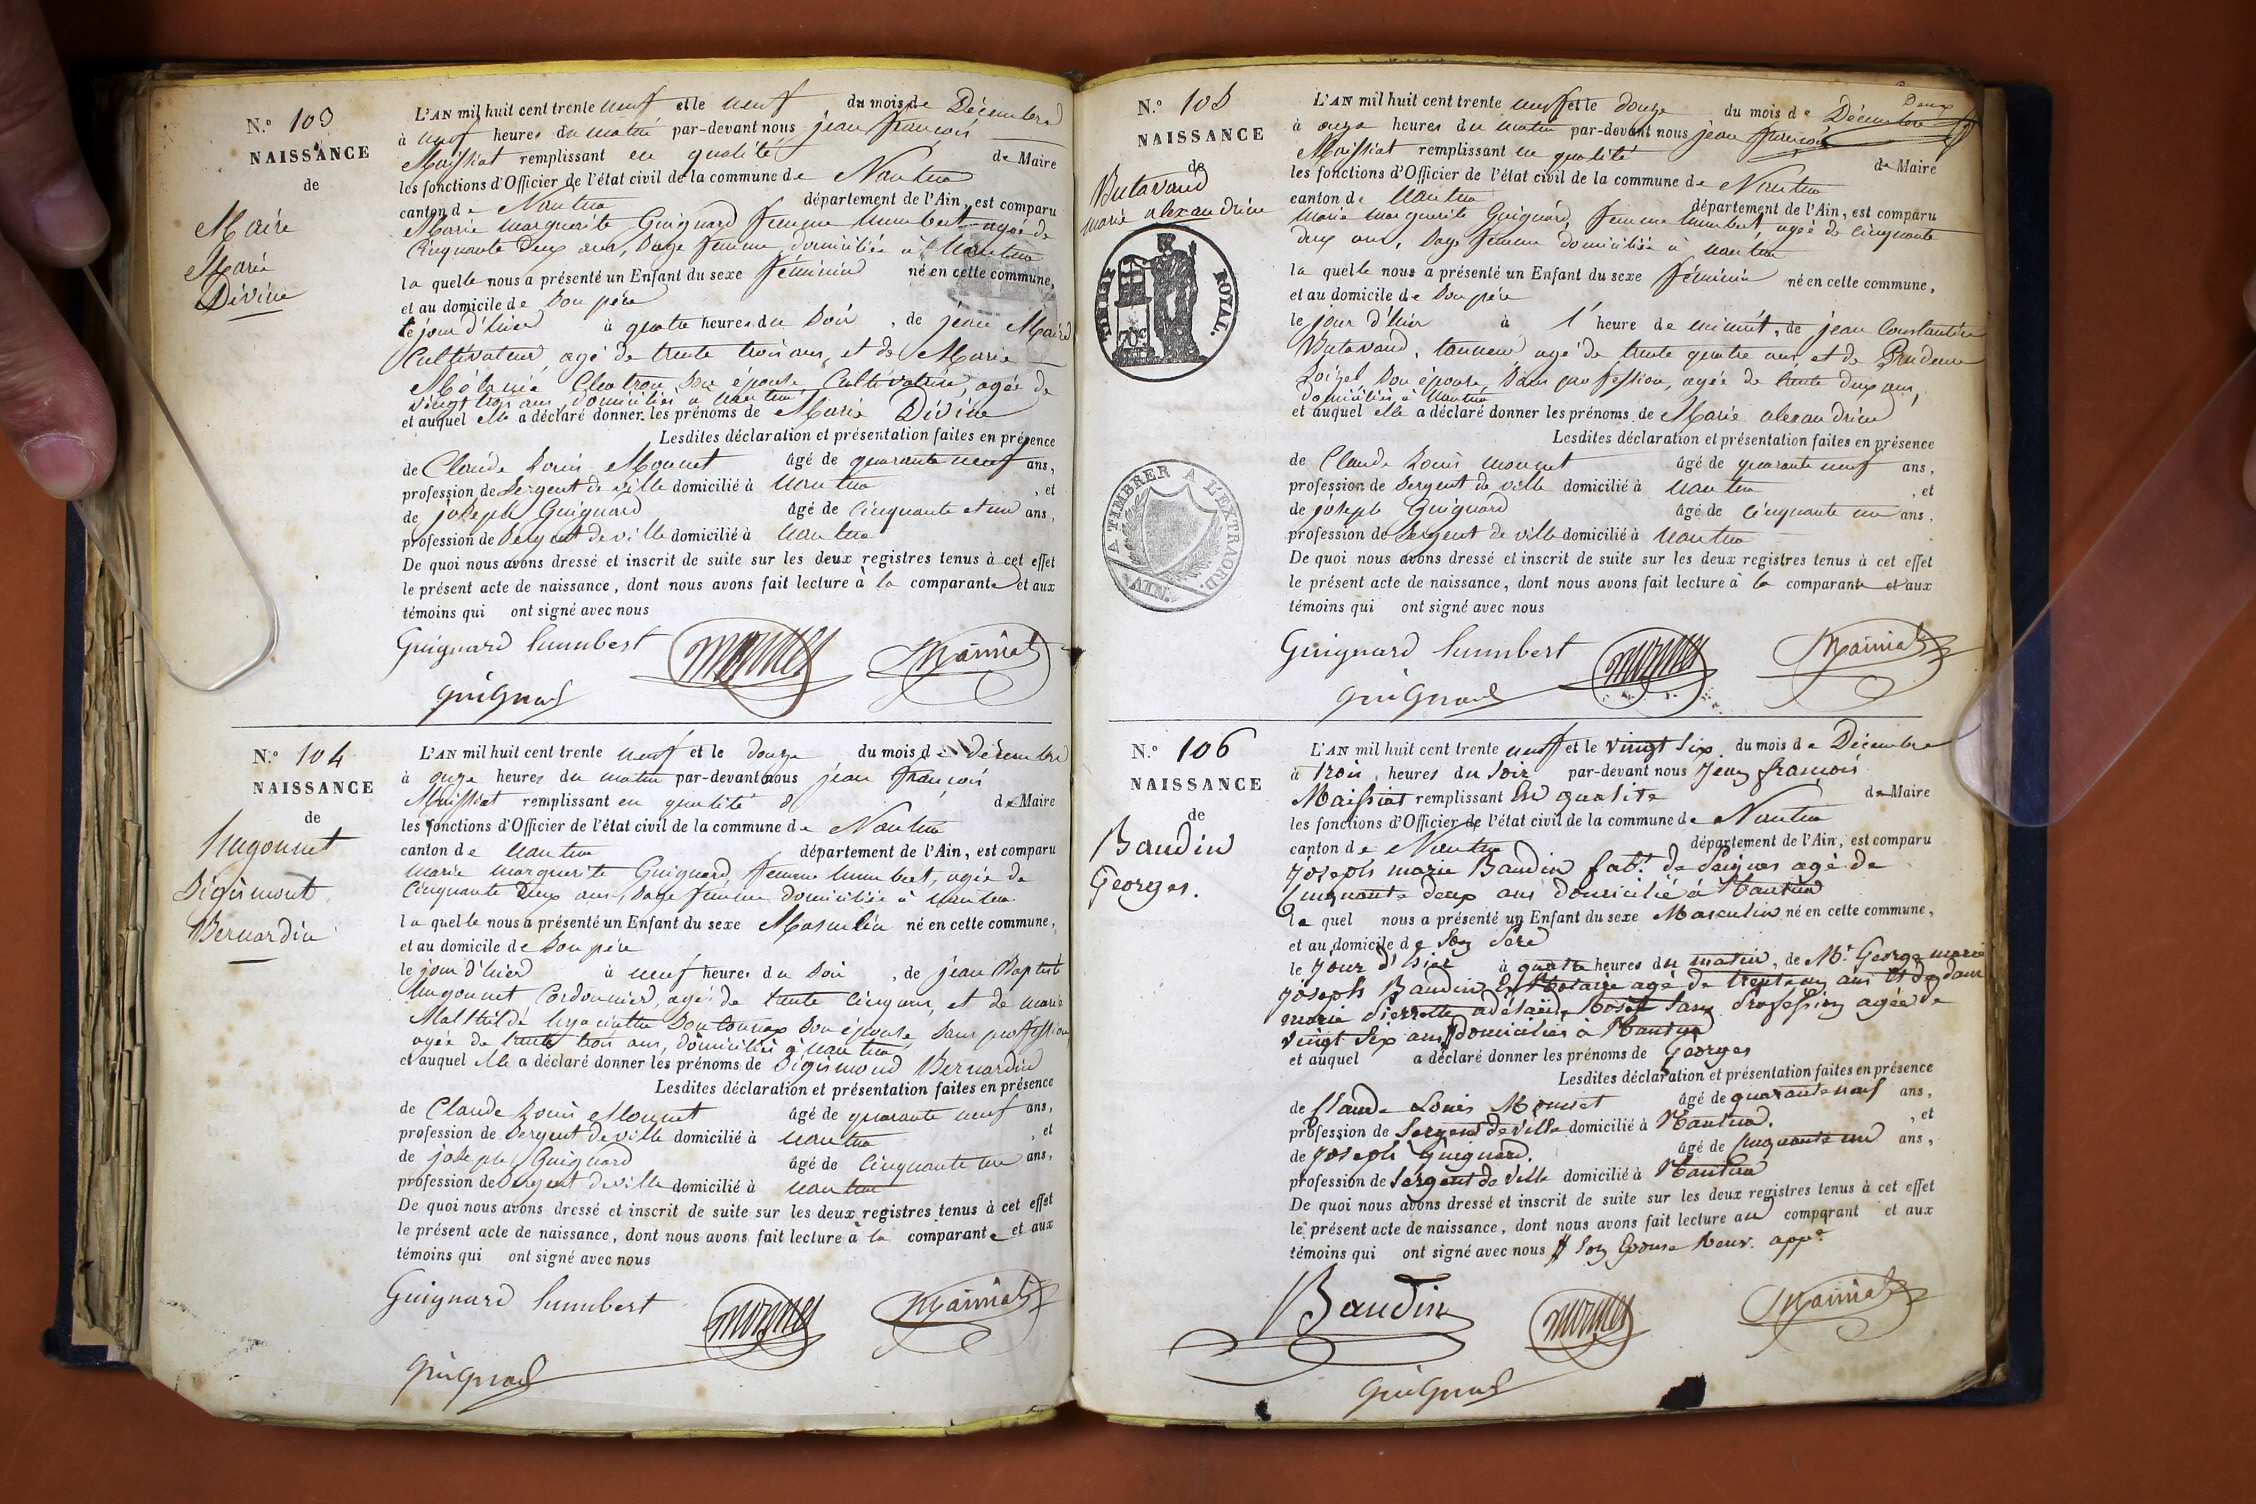 N.° 103
NAISSANCE
de
Maire
Marie
Divine
L'AN mil huit cent trente neuf et le neuf du mois de Décembre
à neuf heures du matin par-devant nous jean françois
Maissiat remplissant en qualité de Maire
les fonctions d'Officier de l'état civil de la commune de Nantua
canton de Nantua département de l'Ain, est comparu
Marie marguerite Guignard femme humbert agée de
Cinquante Deux ans, Sage femme, domiciliée à Nantua
la quelle nous a présenté un Enfant du sexe féminin né en cette commune,
et au domicile de Son père
le jour d'hier à quatre heures du Soir, de jean Maire
Cultivateur, agé de trente trois ans, et de Marie
Mélanie Son épouse, Cultivatrice, agée de
vingt trois ans, domiciliés à nantua
et auquel elle a déclaré donner les prénoms de Marie Divine
Lesdites déclaration et présentation faites en présence
de Claude Louis Monnet âgé de quarante neuf ans,
profession de Sergent de ville domicilié à nantua, et
de joseph Guignard âgé de Cinquante et un ans,
profession de Sergent de ville domicilié à nantua
De quoi nous avons dressé et inscrit de suite sur les deux registres tenus à cet effet
le présent acte de naissance, dont nous avons fait lecture à la comparante et aux
témoins qui ont signé avec nous
Guignard humbert monnet Maissiat
guignard
N.° 104
NAISSANCE
de
hugonnet
Sigismont
Bernardin
L'AN mil huit cent trente neuf et le douze du mois de Décembre
à onze heures du matin par-devant nous jean françois
Maissiat remplissant en qualité de Maire
les fonctions d'Officier de l'état civil de la commune de Nantua
canton de nantua département de l'Ain, est comparu
marie marguerite Guignard, femme humbert, agée de
Cinquante Deux ans, Sage femme domiciliée à nantua
la quelle nous a présenté un Enfant du sexe Masculin né en cette commune,
et au domicile de Son père
le jour d'hier à neuf heures du Soir, de jean Baptiste
hugonnet Cordonnier, agé de trente cinq ans, et de marie
Mathilde hyacinthe Son épouse Sans proffession
agée de trente trois ans, domiciliés à nantua
et auquel elle a déclaré donner les prénoms de Sigismond Bernardin
Lesdites déclaration et présentation faites en présence
de Claude Louis Monnet âgé de quarante neuf ans,
profession de Sergent de ville domicilié à nantua, et
de joseph Guignard âgé de Cinquante un ans,
profession de Sergent de ville domicilié à nantua
De quoi nous avons dressé et inscrit de suite sur les deux registres tenus à cet effet
le présent acte de naissance, dont nous avons fait lecture à la comparante et aux
témoins qui ont signé avec nous
Guignard humbert monnet Maissiat
guignard
N.° 105
NAISSANCE
de
Butavand
marie alexandrine
TIMBRE ROYAL.
70C
A TIMBRER A L'EXTRAORD.
AIN
L'AN mil huit cent trente neuf et le douze du mois de Décembre
à onze heures du matin par-devant nous jean françois
Maissiat remplissant en qualité de Maire
les fonctions d'Officier de l'état civil de la commune de Nantua
canton de nantua département de l'Ain, est comparu
marie marguerite Guignard, femme humbert, agée de cinquante
deux ans, Sage femme domiciliée à nantua
la quelle nous a présenté un Enfant du sexe féminin né en cette commune,
et au domicile de Son père
le jour d'hier à l'heure de minuit, de jean Constantin
Butavand, tanneur agé de trente quatre ans, et de Prudence
Son épouse, Sans profession, agée de trente deux ans,
domiciliés à nantua
et auquel elle a déclaré donner les prénoms de Marie alexandrine
Lesdites déclaration et présentation faites en présence
de Claude Louis monnet âgé de quarante neuf ans,
profession de Sergent de ville domicilié à nantua, et
de joseph Guignard âgé de cinquante un ans,
profession de Sergent de ville domicilié à nantua
De quoi nous avons dressé et inscrit de suite sur les deux registres tenus à cet effet
le présent acte de naissance, dont nous avons fait lecture à la comparante et aux
témoins qui ont signé avec nous
Guignard humbert monnet Maissiat
guignard
N.° 106
NAISSANCE
de
Baudin
Georges.
L'AN mil huit cent trente neuf et le vingt Six du mois de Décembre
à trois heures du Soir par-devant nous Jean françois
Maissiat remplissant En qualité de Maire
les fonctions d'Officier de l'état civil de la commune de Nantua
canton de Nantua département de l'Ain, est comparu
Joseph marie Baudin fabt. de Peignes agé de
Cinquante deux ans domicilié à Nantua
le quel nous a présenté un Enfant du sexe Masculin né en cette commune,
et au domicile de Son Père
le Jour d'hier à quatre heures du matin, de Mr. George marie
Joseph Baudin Notaire agé de ans et de dame
marie Pierrette adélaïde Sans Profession agée de
vingt Six ans domiciliés à Nantua
et auquel a déclaré donner les prénoms de Georges
Lesdites déclaration et présentation faites en présence
de Claude Louis Monnet âgé de quarante neuf ans,
profession de Sergent de ville domicilié à Nantua, et
de Joseph Guignard. âgé de Cinquante un ans,
profession de Sergent de Ville domicilié à Nantua
De quoi nous avons dressé et inscrit de suite sur les deux registres tenus à cet effet
le présent acte de naissance, dont nous avons fait lecture au comparant et aux
témoins qui ont signé avec nous Son Epouse
Baudin monnet Maissiat
guignard